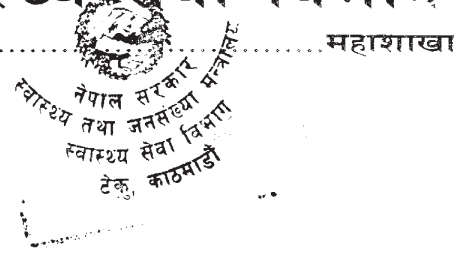 महाशाखा
नेपाल सरकार
स्वास्थ्य तथा जनसंख्या मन्त्रालय
स्वास्थ्य सेवा विभाग
टेकु, काठमाडौं